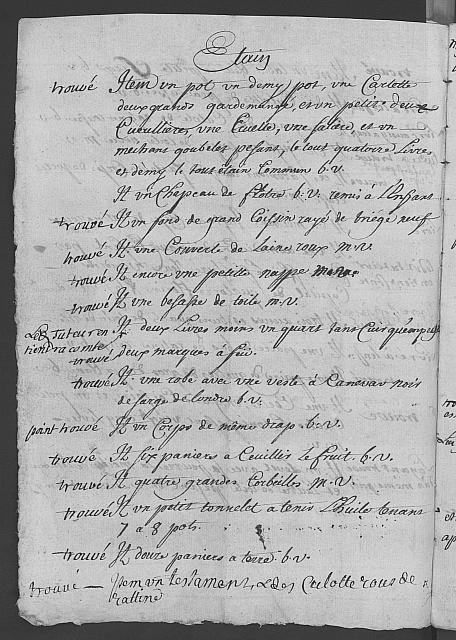 Etain
trouvé Item un pot un demy pot, une Carlotte
deux grands gardemange, et un petit, deux
Cueullieres, une Ecuelle, une saliere et un
mechans goubelet pesant, le tout quatorze Livres
et demy le tout étain commun b.v.
It un Chapeau de flotre b.v. remis à l'Enfant
trouvé It un fond de grand Coissin rayé de triege neuf
trouvé It une Couverte de Laine roux m.v.
trouvé It encore une petitte nappe
trouvé It une besasse de toile m.v.
Le Tuteur en It deux Livres moins un quart tant Cuir qu'empeigne
tiendra compte
trouvé deux marques à feu.
trouvé It une robe avec une veste à Canevas noir
de sarge de londre b.v.
point trouvé It un Corps de même drap b.v.
trouvé It six paniers a Ceuillir le fruit b.v.
trouvé It quatre grandes Corbeilles m.v.
trouvé It un petit tonnelet a tenir l'huile tenant
7 a 8 pots
trouvé It douze paniers a terre b.v.
trouvé — Item un testament, & des Culotte rous de
ratine